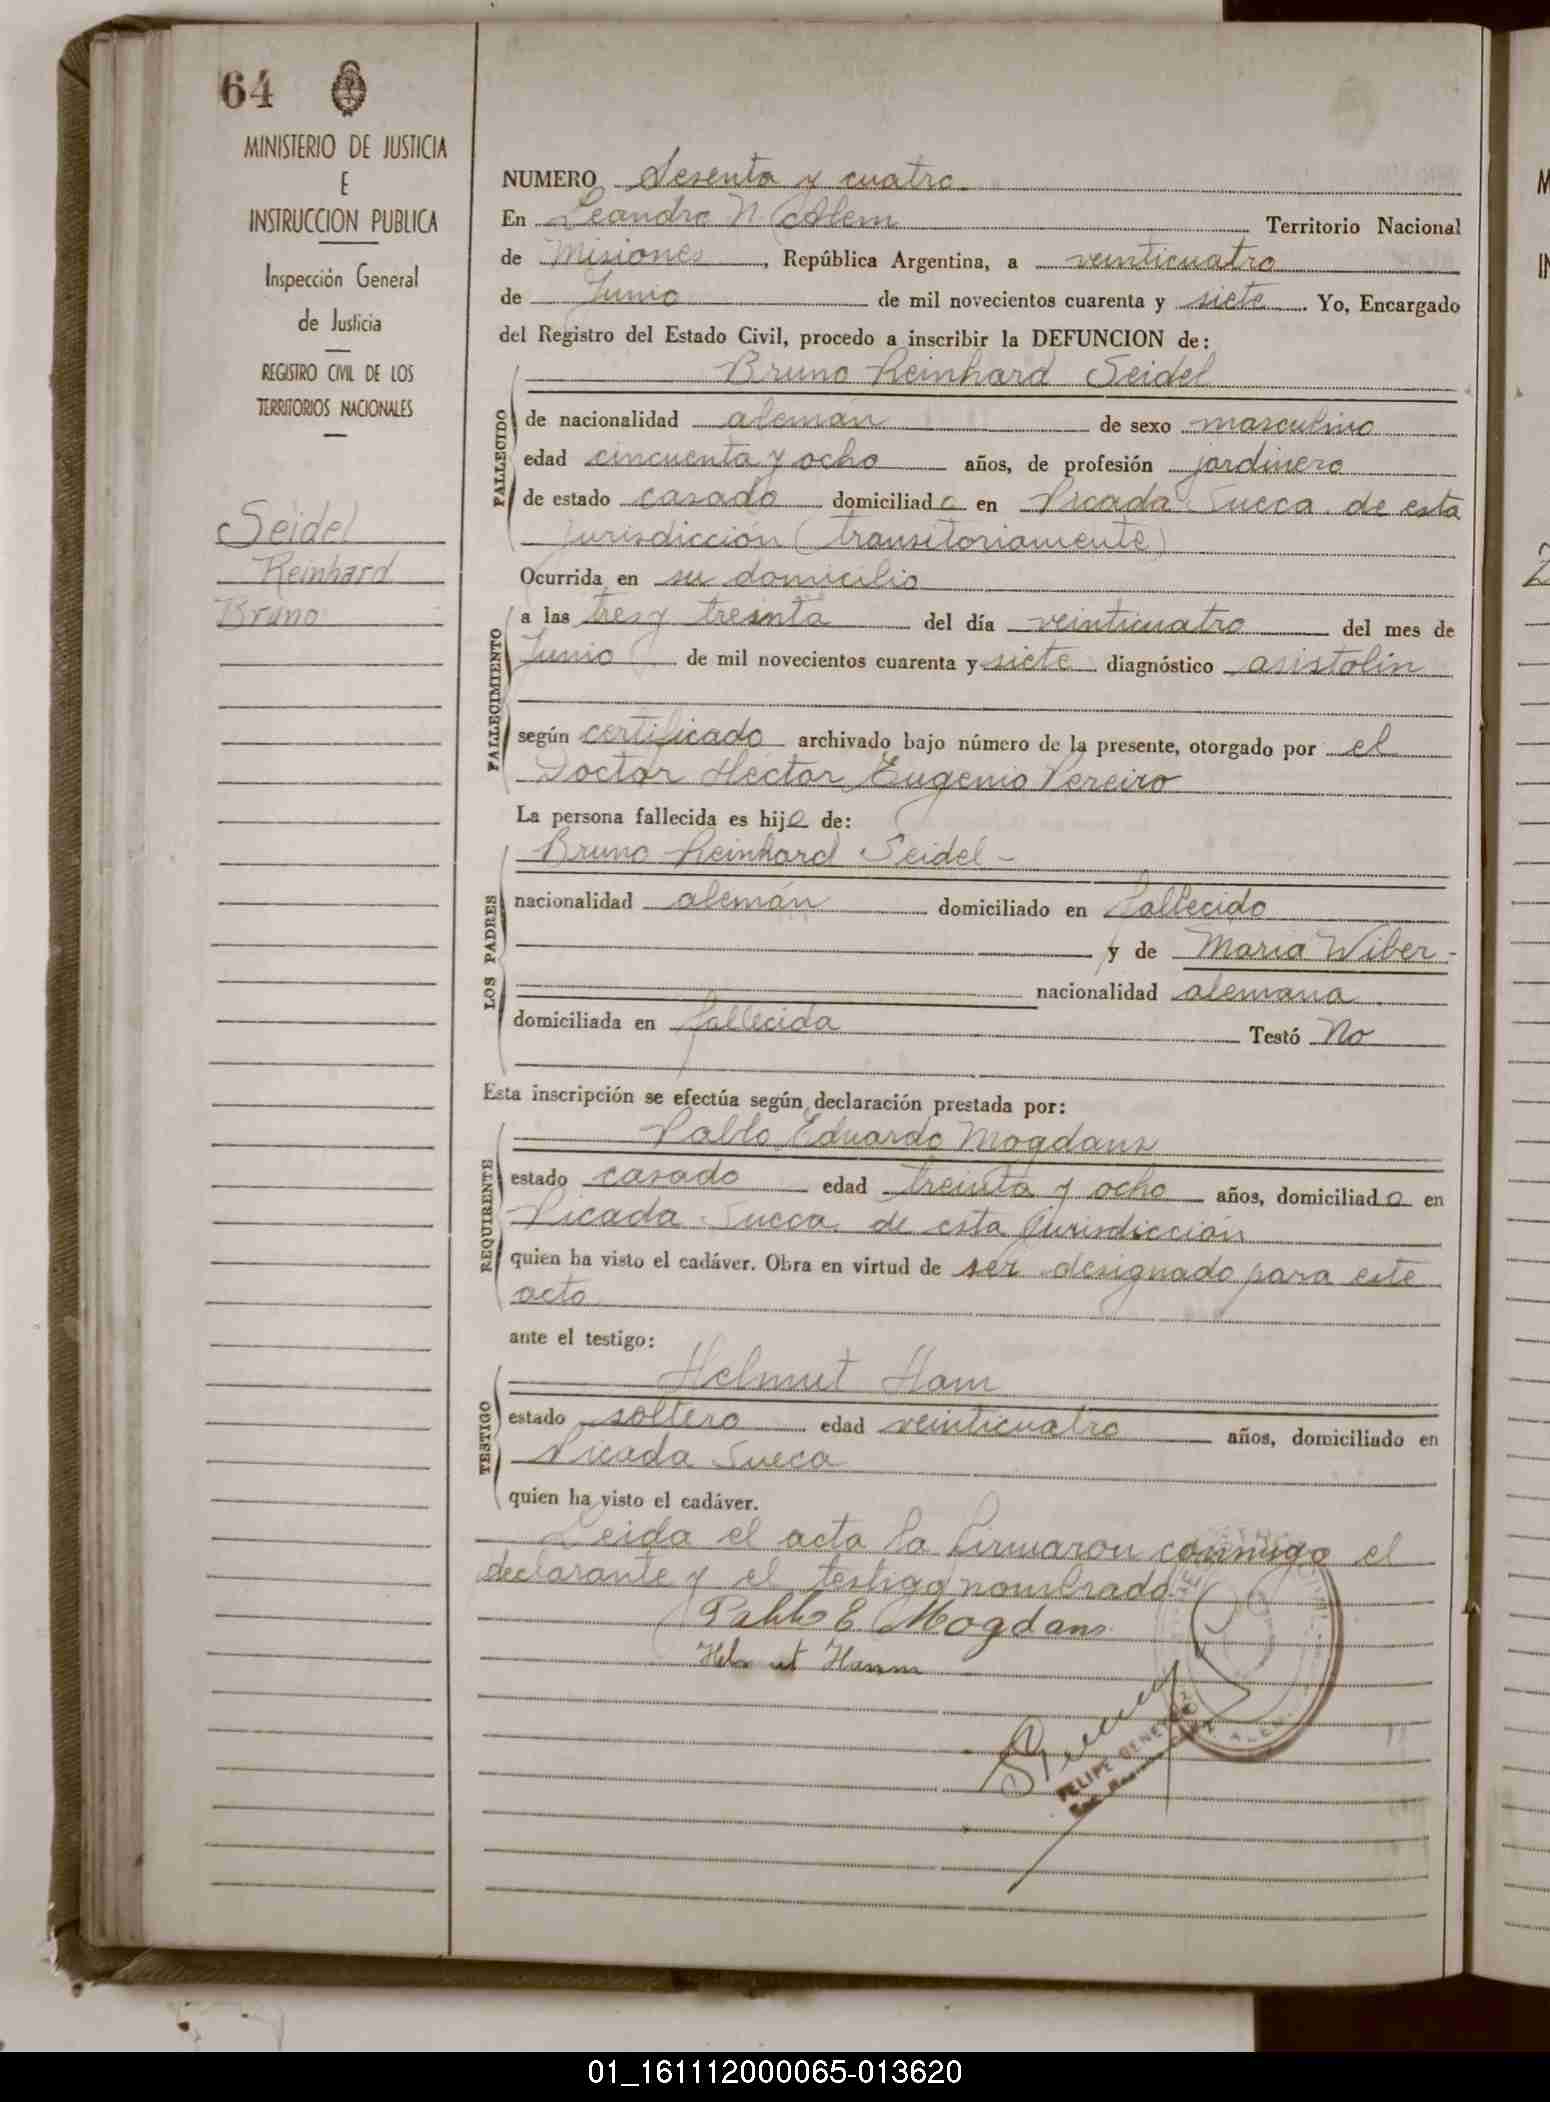 64
MINISTERIO DE JUSTICIA
E
INSTRUCCION PUBLICA
Inspección General
de Justicia
REGISTRO CIVIL DE LOS
TERRITORIOS NACIONALES
Seidel
Reinhard
Bruno
NUMERO Sesenta y cuatro
En Leandro N. Alem Territorio Nacional
de Misiones, República Argentina, a veinticuatro
de Junio de mil novecientos cuarenta y siete. Yo, Encargado
del Registro del Estado Civil, procedo a inscribir la DEFUNCION de:
Bruno Reinhard Seidel
FALLECIDO
de nacionalidad alemán de sexo masculino
edad cincuenta y ocho años, de profesión jardinero
de estado casado domiciliado en Picada Sueca de esta
Jurisdicción (transitoriamente)
Ocurrida en su domicilio
FALLECIMIENTO
a las tres y treinta del día veinticuatro del mes de
Junio de mil novecientos cuarenta y siete diagnóstico asistolin
según certificado archivado bajo número de la presente, otorgado por el
Doctor Héctor Eugenio Pereiro
La persona fallecida es hijo de:
LOS PADRES
Bruno Reinhard Seidel -
nacionalidad alemán domiciliado en fallecido
y de Maria Wiber -
nacionalidad alemana
domiciliada en fallecida Testó No
Esta inscripción se efectúa según declaración prestada por:
REQUIRENTE
Pablo Eduardo Mogdans
estado casado edad treinta y ocho años, domiciliado en
Picada Sueca de esta Jurisdicción
quien ha visto el cadáver. Obra en virtud de ser designado para este
acto
ante el testigo:
TESTIGO
Helmut Ham
estado soltero edad veinticuatro años, domiciliado en
Picada Sueca
quien ha visto el cadáver.
Leida el acta la firmaron conmigo el
declarante y el testigo nombrado.
Pablo E Mogdans
Helmut Hamm
FELIPE
ALEM
01_161112000065-013620